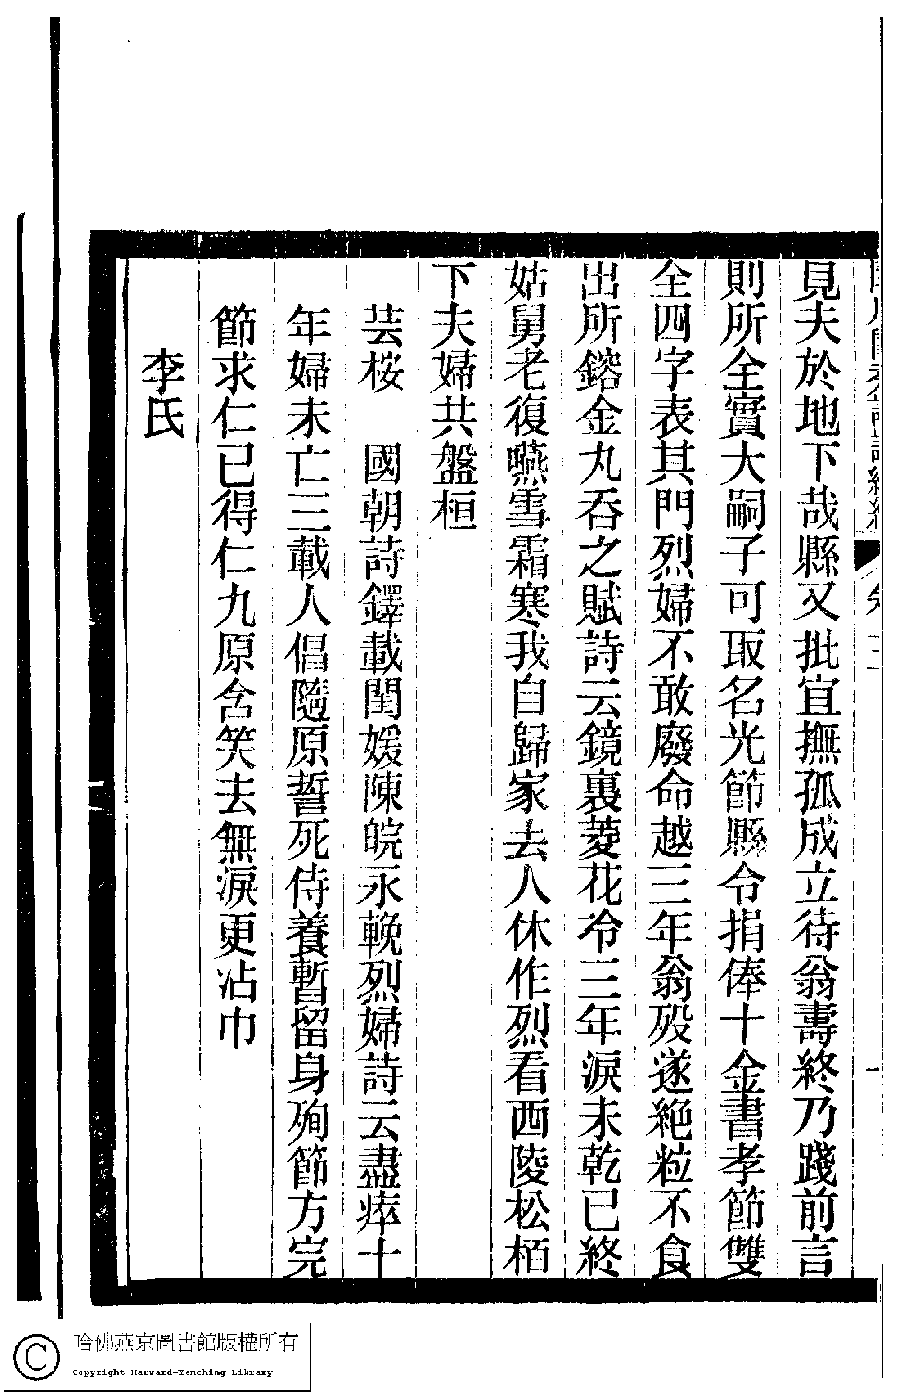 見夫於地下哉縣又批宜撫孤成立待翁壽終乃踐前言
則所全實大嗣子可取名光節縣令捐俸十金書孝節雙
全四字表其門烈婦不敢廢命越三年翁歿遂絕粒不食
出所鎔金丸吞之賦詩云鏡裏菱花冷三年淚未乾已終
姑舅老復嚥雪霜寒我自歸家去人休作烈看西陵松栢
下夫婦共盤桓
芸桉 國朝詩鐸載閨媛陳皖永輓烈婦詩云盡瘁十
年婦未亡三載人倡隨原誓死侍養暫留身殉節方完
節求仁已得仁九原含笑去無淚更沾巾
李氏
哈佛燕京圖書館版權所有
Copyright Harvard-Yenching Library